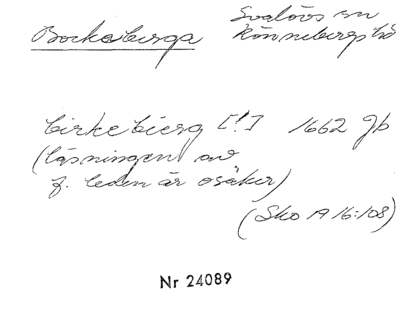 Bockeberga Svalövs sn
Rönnebergs hd
birkebierg [!] 1662 Jb
(läsningen av
f. leden är osäker)
(Sko 19 16:108)
Nr 24089